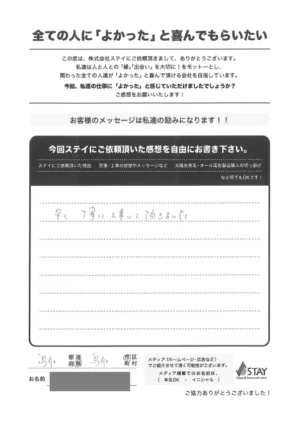 全ての人に「よかった」と喜んでもらいたい
この度は、株式会社ステイにご依頼頂きまして、ありがとうございます。
私達は人と人との「縁」「出会い」を大切に！をモットーとし、
関わった全ての人達が「よかった」と喜んで頂ける会社を目指しています。
今回、私達の仕事に「よかった」と感じていただけましたでしょうか？
ご感想をお願いいたします！
お客様のメッセージは私達の励みになります！！
今回ステイにご依頼頂いた感想を自由にお書き下さい。
ステイにご依頼頂いた理由 営業・工事の感想やメッセージなど 太陽光発電・オール電化製品購入の切っ掛け
など何でもOKです！
早く、丁寧に工事して頂きました
都道
府県
市区
町村
お名前
メディア（ホームページ・広告など）
でご紹介させて頂く可能性がございます。
メディア掲載でのお名前は、
（ 本名OK ・ イニシャル ）
STAY
ご協力ありがとうございました！